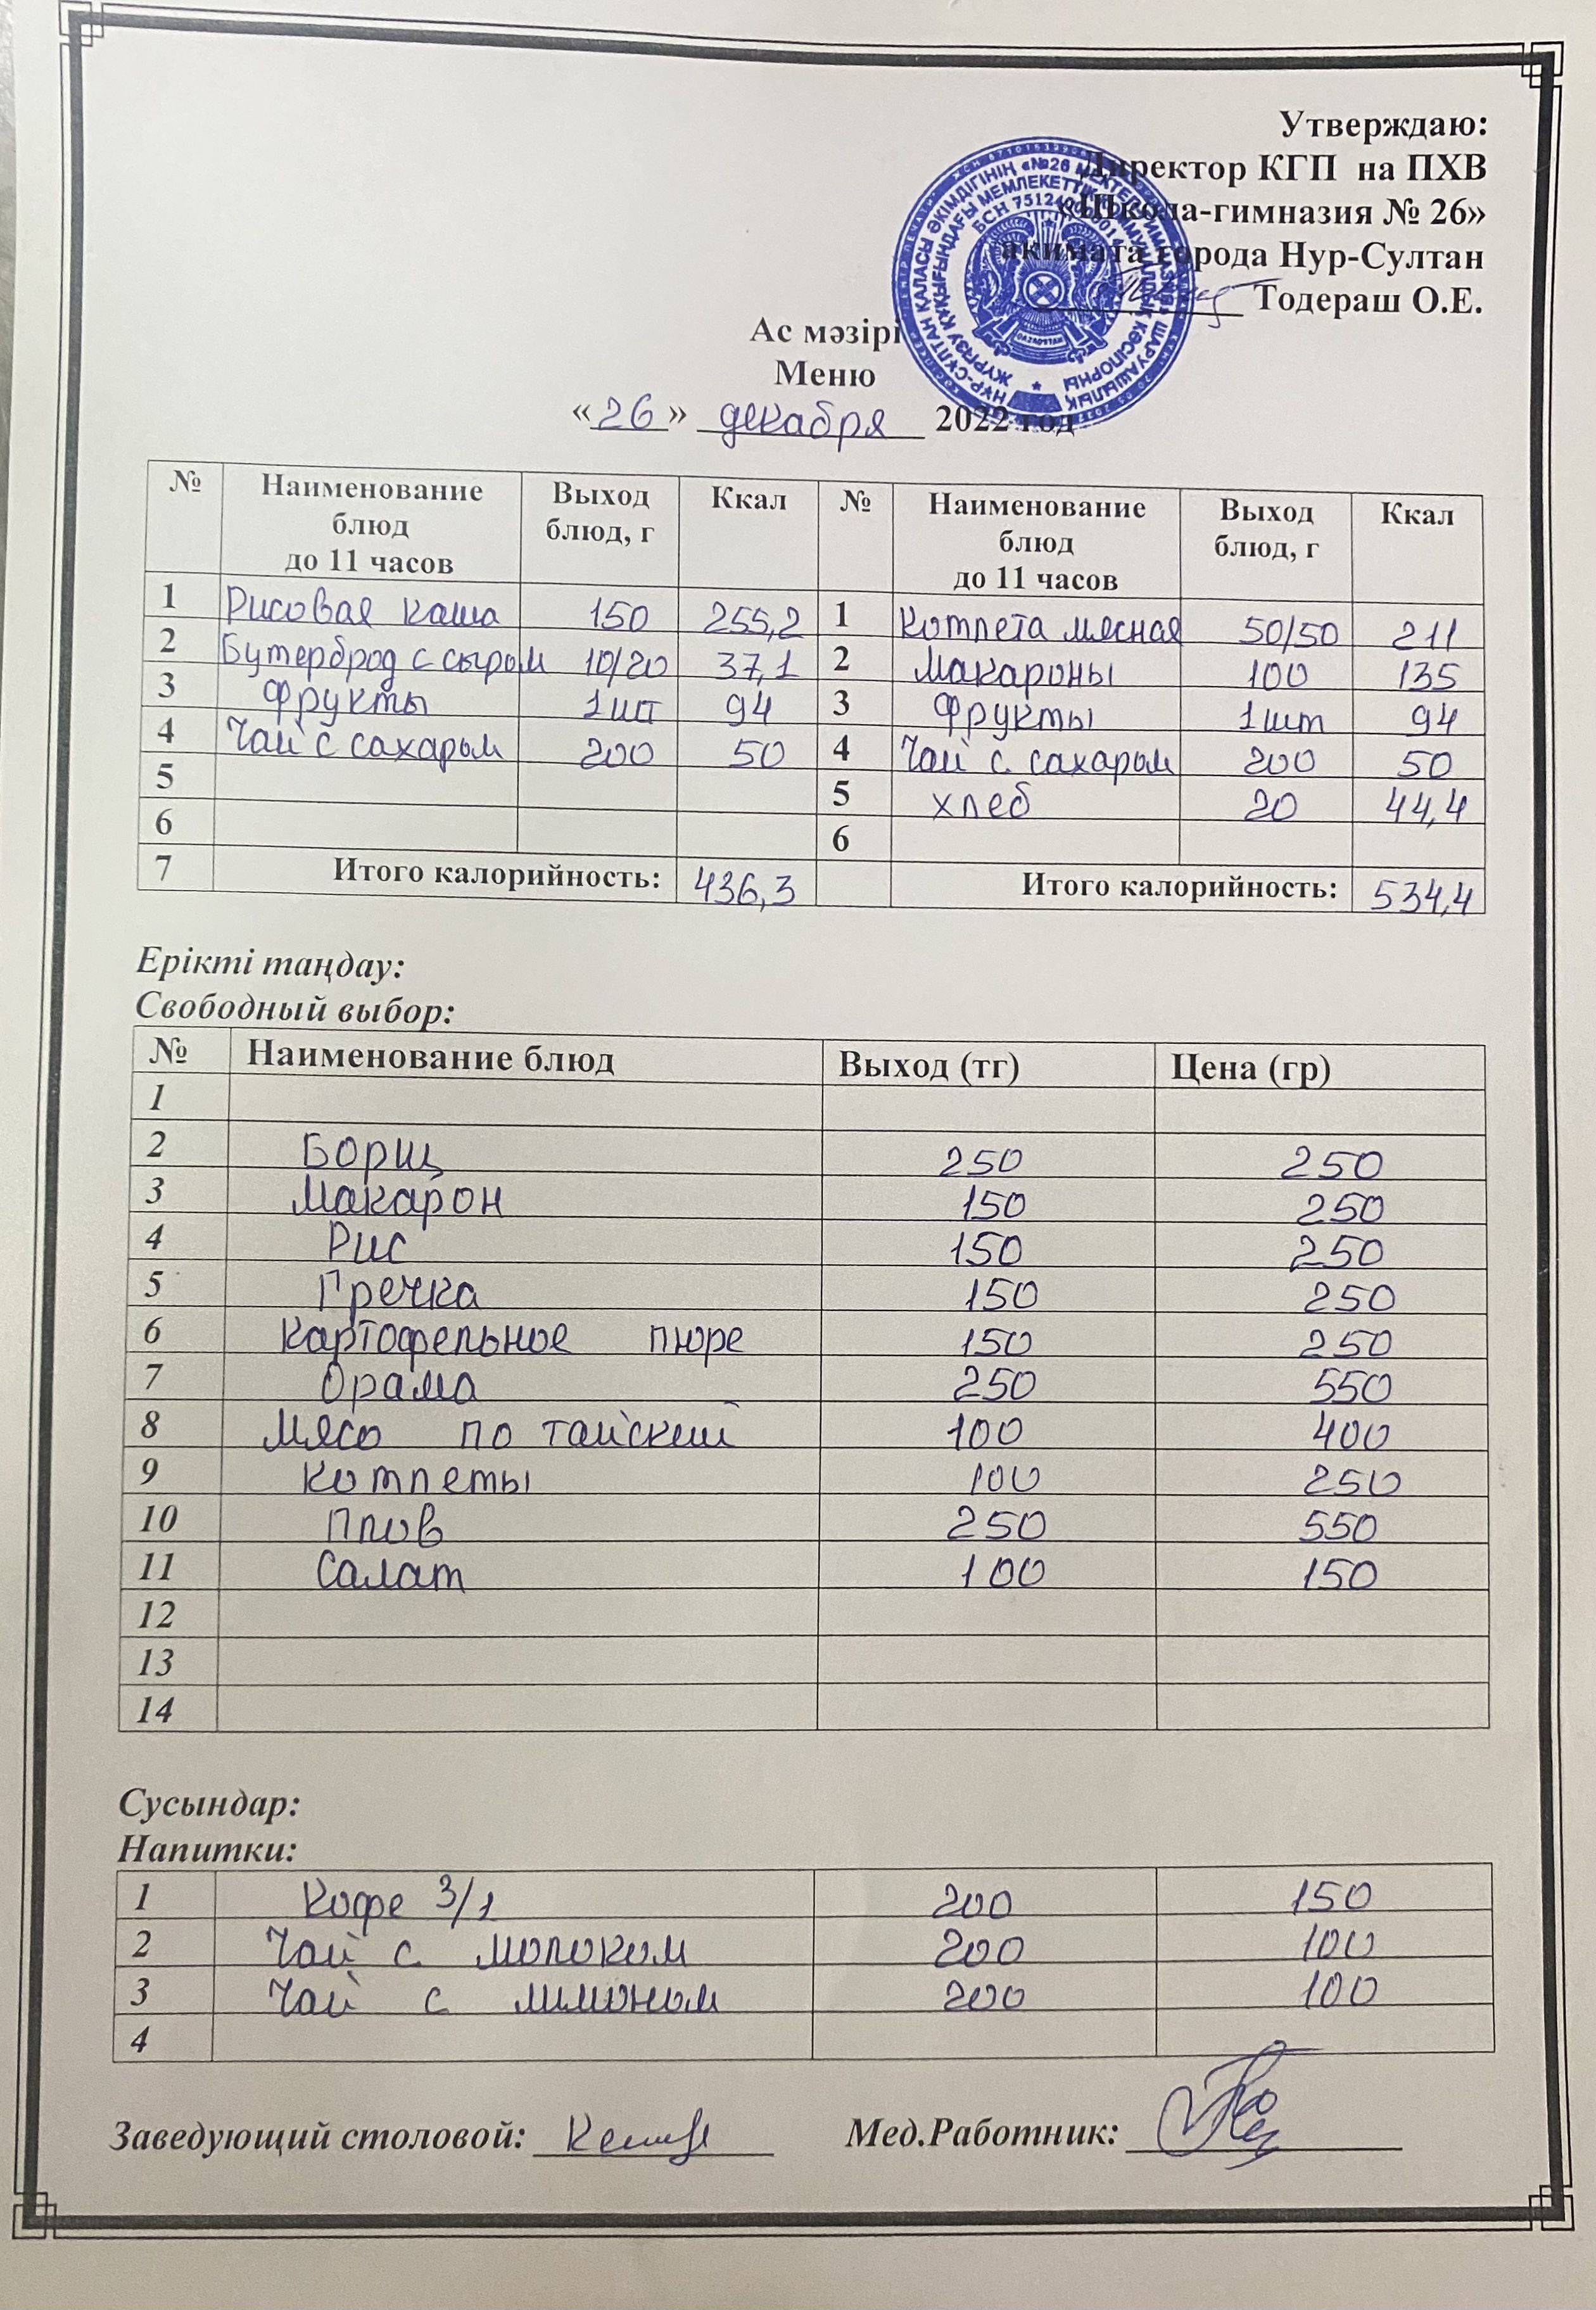 Утверждаю:
Директор КГП на ПХВ
«Школа-гимназия № 26»
акимата города Нур-Султан
Тодераш О.Е.
Ас мәзірі
Меню
«26» декабря 2022 год
№ Наименование блюд до 11 часов Выход блюд, г Ккал № Наименование блюд до 11 часов Выход блюд, г Ккал
1 Рисовая каша 150 255,2 1 Котлета мясная 50/50 211
2 Бутерброд с сыром 10/20 37,1 2 Макароны 100 135
3 Фрукты 1шт 94 3 Фрукты 1шт 94
4 Чай с сахаром 200 50 4 Чай с сахаром 200 50
5 5 хлеб 20 44,4
6 6
7 Итого калорийность: 436,3 Итого калорийность: 534,4
Ерікті таңдау:
Свободный выбор:
№ Наименование блюд Выход (тг) Цена (гр)
1
2 Борщ 250 250
3 Макарон 150 250
4 Рис 150 250
5 Гречка 150 250
6 Картофельное пюре 150 250
7 Орама 250 550
8 Мясо по тайский 100 400
9 Котлеты 100 250
10 Плов 250 550
11 Салат 100 150
12
13
14
Сусындар:
Напитки:
1 Кофе 3/1 200 150
2 Чай с молоком 200 100
3 Чай с лимоном 200 100
4
Заведующий столовой: Мед.Работник: